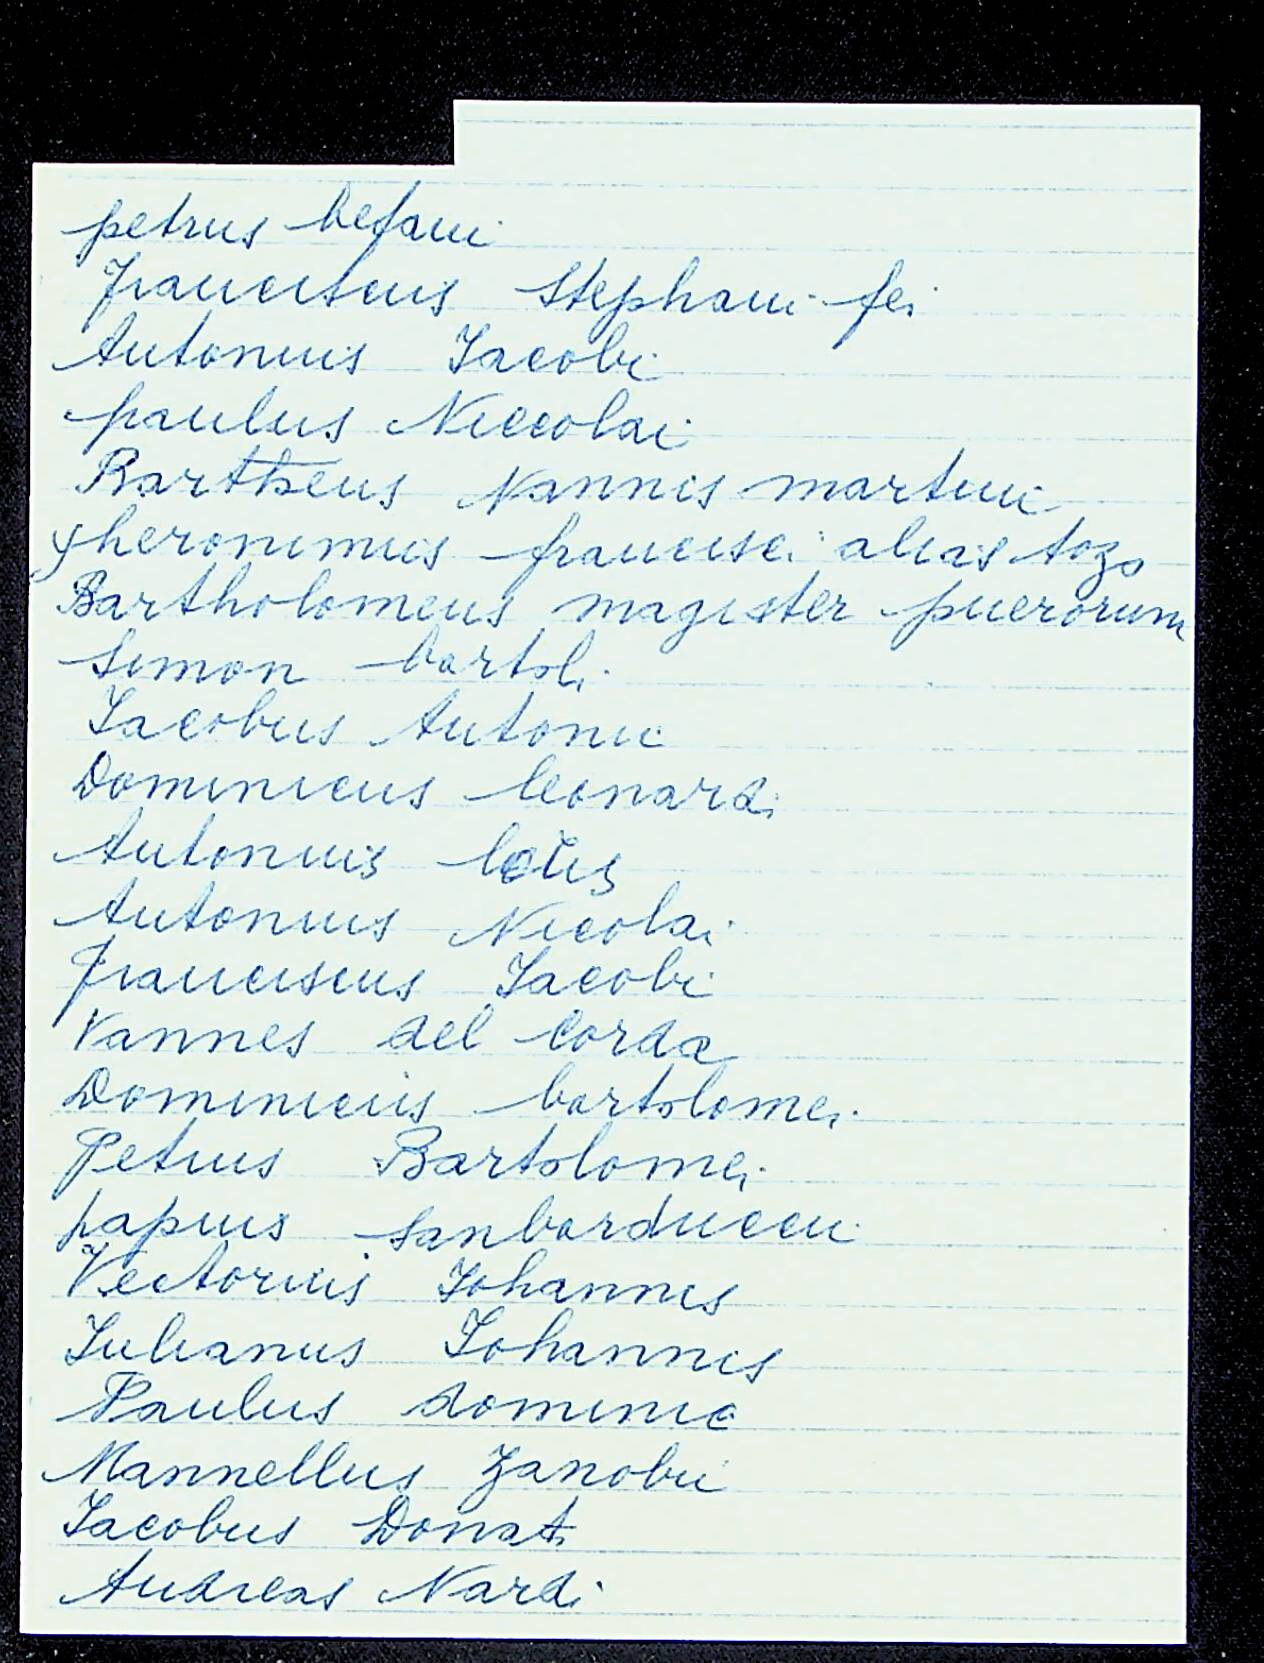 petrus befani
Franciscus Stephani fei
Antonius Iacobi
paulus Niccolai
Bartheus Nannis martini
Jheronimus francisci alias tozo
Bartholomeus magister puerorum
Simon bartoli
Iacobus Antonii
Dominicus leonardi
Antonius
Antonius Nicolai
Franciscus Iacobi
Vannes del corda
Dominicus bartolomei
Petrus Bartolomei
papius sanbarduccii
Vectorius Iohannis
Iulianus Iohannis
Paulus dominic
Mannellus Zanobii
Iacobus Donati
Andreas Nardi